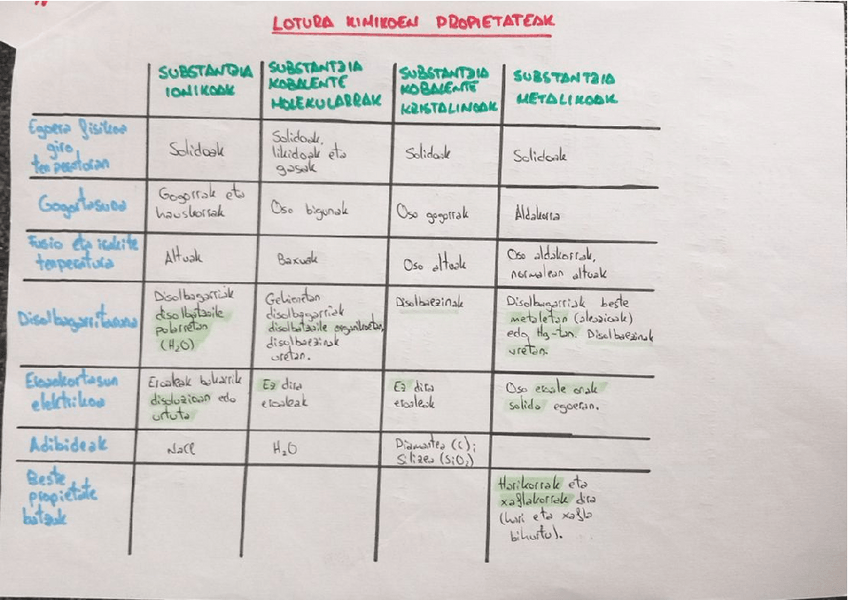 LOTURA KIMIKOEN PROPIETATEAK
SUBSTANTZIA
IONIKOAK
SUBSTANTZIA
KOBALENTE
MOLEKULARRAK
SUBSTANTZIA
KOBALENTE
KRISTALINOAK
SUBSTANTZIA
METALIKOAK
Egoera fisikoa
giro
tenperaturan
Solidoak
Solidoak,
likidoak eta
gasak
Solidoak
Solidoak
Gogortasuna
Gogorrak eta
hauskorrak
Oso bigunak
Oso gogorrak
Aldakorra
Fusio eta irakite
tenperatura
Altuak
Baxuak
Oso altuak
Oso aldakorrak,
normalean altuak
Disolbagarritasuna
Disolbagarriak
disolbatzaile
polarretan
(H₂O)
Gehienetan
disolbagarriak
disolbatzaile organikoetan,
disolbaezinak
uretan.
Disolbaezinak
Disolbagarriak beste
metaletan (aleazioak)
edo Hg-tan. Disolbaezinak
uretan.
Eroankortasun
elektrikoa
Eroaleak bakarrik
disoluzioan edo
urtuta
Ez dira
eroaleak
Ez dira
eroaleak
Oso eroale onak
solido egoeran.
Adibideak
NaCl
H₂O
Diamantea (C);
Silizea (SiO₂)
Beste
propietate
batzuk
Harikorrak eta
xaflakorrak dira
(hari eta xafla
bihurtu).